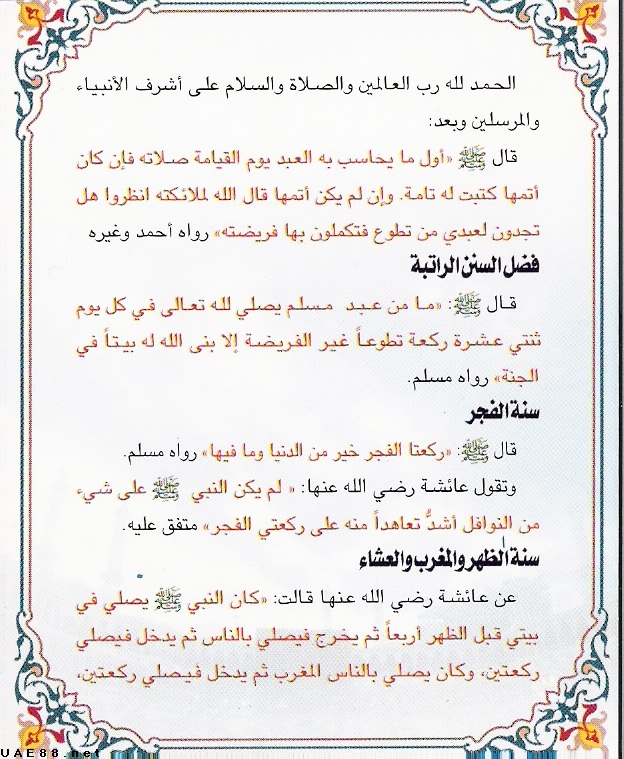 الحمد لله رب العالمين والصلاة والسلام على أشرف الأنبياء
والمرسلين وبعد:
قال ﷺ «أول ما يحاسب به العبد يوم القيامة صلاته فإن كان
أتمها كتبت له تامة. وإن لم يكن أتمها قال الله لملائكته انظروا هل
تجدون لعبدي من تطوع فتكملون بها فريضته» رواه أحمد وغيره
فضل السنن الراتبة
قال ﷺ: «ما من عبد مسلم يصلي لله تعالى في كل يوم
ثنتي عشرة ركعة تطوعاً غير الفريضة إلا بنى الله له بيتاً في
الجنة» رواه مسلم.
سنة الفجر
قال ﷺ: «ركعتا الفجر خير من الدنيا وما فيها» رواه مسلم.
وتقول عائشة رضي الله عنها: « لم يكن النبي ﷺ على شيء
من النوافل أشدُّ تعاهداً منه على ركعتي الفجر» متفق عليه.
سنة الظهر والمغرب والعشاء
عن عائشة رضي الله عنها قالت: «كان النبي ﷺ يصلي في
بيتي قبل الظهر أربعاً ثم يخرج فيصلي بالناس ثم يدخل فيصلي
ركعتين، وكان يصلي بالناس المغرب ثم يدخل فيصلي ركعتين،
UAE88.net